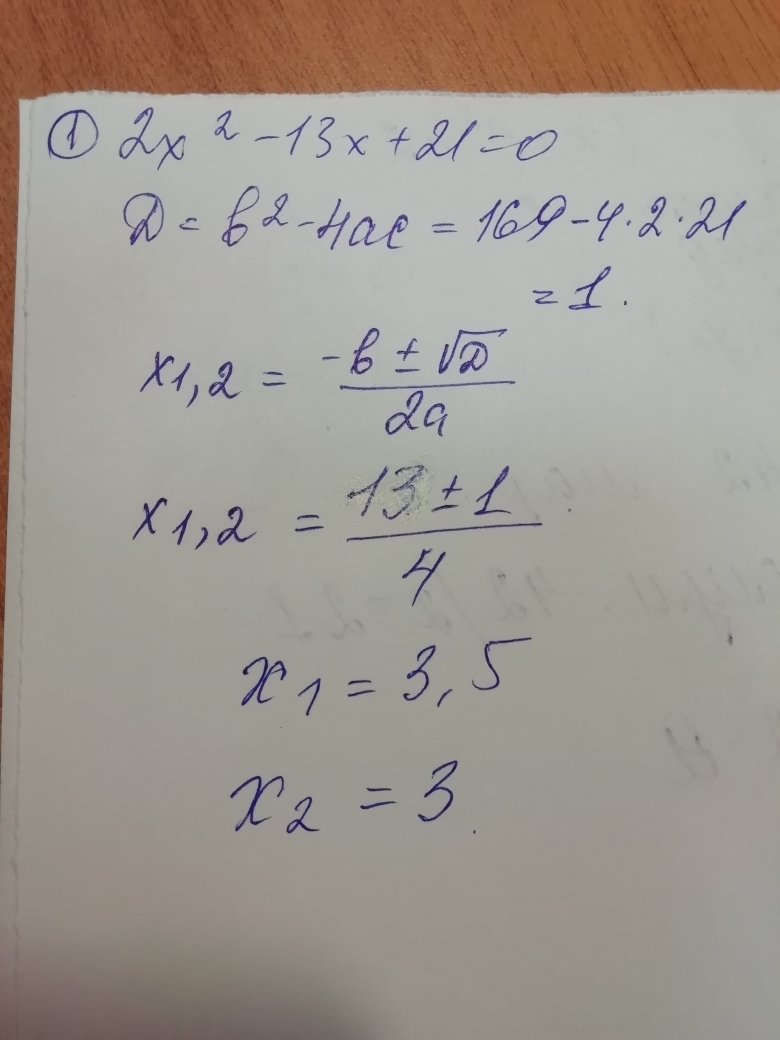 ① 2x² -13x+21=0
D = b² -4ac = 169-4·2·21
= 1.
x1,2 = -b ± √D / 2a
x1,2 = 13 ± 1 / 4
x1 = 3,5
x2 = 3